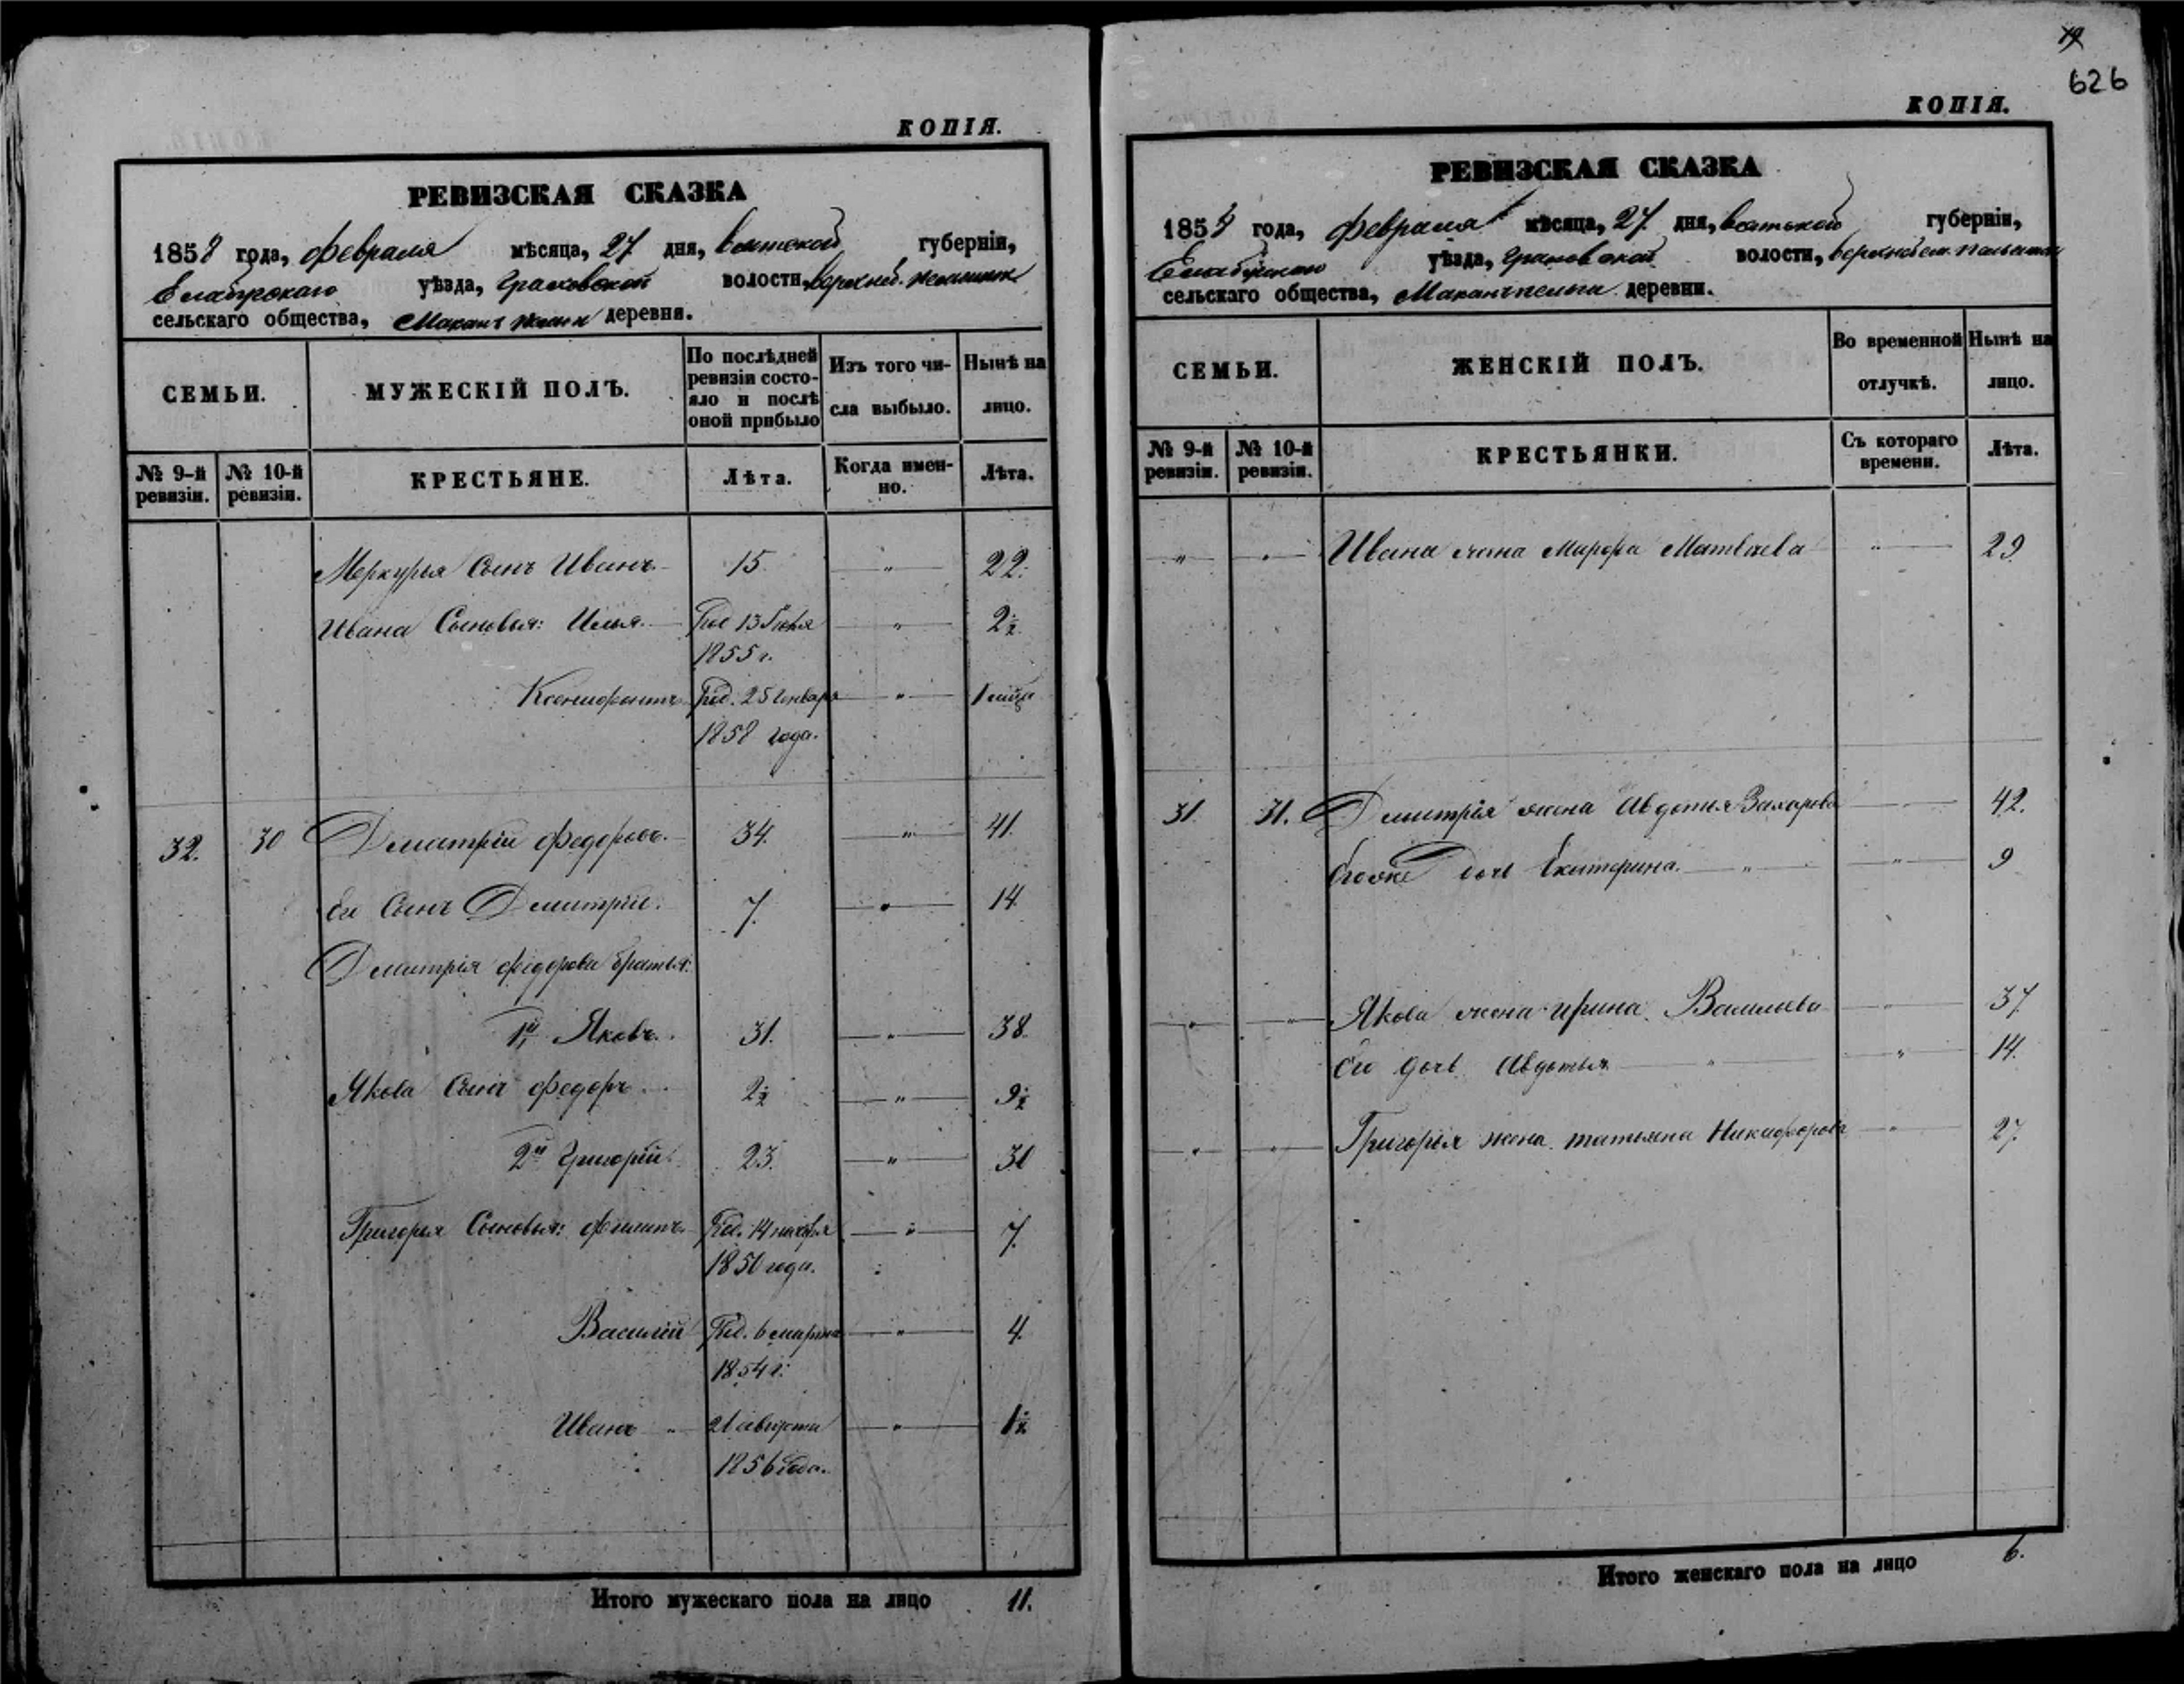 КОПІЯ.
РЕВИЗСКАЯ СКАЗКА
1858 года, февраля мѣсяца, 27 дня, Вятской губерніи,
Елабужскаго уѣзда, Граховской волости, верхней
сельскаго общества, Макан деревни.
СЕМЬИ.
МУЖЕСКІЙ ПОЛЪ.
По послѣдней
ревизіи состо-
яло и послѣ
оной прибыло
Изъ того чи-
сла выбыло.
Нынѣ на
лицо.
№ 9-й
ревизіи.
№ 10-й
ревизіи.
КРЕСТЬЯНЕ.
Лѣта.
Когда имен-
но.
Лѣта.
Меркурья Сынъ Иванъ 15 " 22.
Ивана Сыновья: Илья. Род 13 1855 г. " 2½
Ксенофонтъ Род. 25 Генваря 1858 года. " 1
32. 30 Дмитрій Федоровъ. 34. " 41.
Его Сынъ Дмитрій. 7. " 14
Дмитрія Федорова братья:
1й Яковъ. 31. " 38.
Якова Сынъ Федоръ 2½ " 9½
2й Григорій 23. " 30
Григорья Сыновья: Филипъ Род. 14 ноября 1850 года. " 7.
Василій Род. 6 марта 1854 г. " 4.
Иванъ " 21 августа 1856 года. " 1½
Итого мужескаго пола на лицо 11.
19
626
КОПІЯ.
РЕВИЗСКАЯ СКАЗКА
1858 года, февраля мѣсяца, 27 дня, Вятской губерніи,
Елабужскаго уѣзда, Граховской волости,
сельскаго общества, Маканъпельга деревни.
СЕМЬИ.
ЖЕНСКІЙ ПОЛЪ.
Во временной
отлучкѣ.
Нынѣ на
лицо.
№ 9-й
ревизіи.
№ 10-й
ревизіи.
КРЕСТЬЯНКИ.
Съ котораго
времени.
Лѣта.
" " Ивана жена Марфа Матвѣева " 29
31. 31. Дмитрія жена Авдотья Захарова 42.
Его же дочь Екатерина. " " 9
" " Якова жена Ирина Васильева " 37
Его дочь Авдотья " " 14.
" " Григорья жена Татьяна Никифорова " 27
Итого женскаго пола на лицо 6.